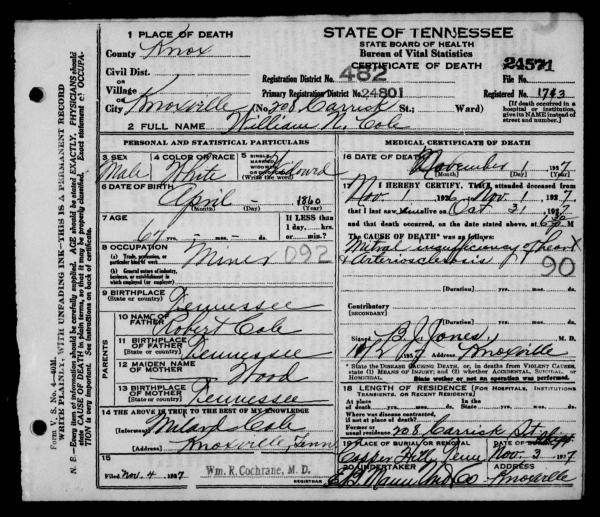 STATE OF TENNESSEE
STATE BOARD OF HEALTH
Bureau of Vital Statistics
CERTIFICATE OF DEATH
1 PLACE OF DEATH
County Knox
Civil Dist.
Village
City Knoxville (No. 208 Carrick St.; Ward)
Registration District No. 482
Primary Registration District No. 24801
24571
File No.
Registered No. 1743
(If death occurred in a hospital or institution, give its NAME instead of street and number.)
2 FULL NAME William N. Cole
PERSONAL AND STATISTICAL PARTICULARS
3 SEX Male
4 COLOR OR RACE White
5 SINGLE, MARRIED, WIDOWED OR DIVORCED (Write the word) Widowed
6 DATE OF BIRTH April - 1860
(Month) (Day) (Year)
7 AGE 67 yrs. - mos. - ds.
If LESS than 1 day, hrs. or min.
8 OCCUPATION
(a) Trade, profession, or particular kind of work Miner 092
(b) General nature of industry, business, or establishment in which employed (or employer)
9 BIRTHPLACE (State or country) Tennessee
PARENTS
10 NAME OF FATHER Robert Cole
11 BIRTHPLACE OF FATHER (State or country) Tennessee
12 MAIDEN NAME OF MOTHER Hood
13 BIRTHPLACE OF MOTHER (State or country) Tennessee
14 THE ABOVE IS TRUE TO THE BEST OF MY KNOWLEDGE
(Informant) Milard Cole
Knoxville, Tenn
15
Filed Nov. 4 1927 Wm. R. Cochrane, M. D.
REGISTRAR
MEDICAL CERTIFICATE OF DEATH
16 DATE OF DEATH November 1 1927
(Month) (Day)
17 I HEREBY CERTIFY, That I attended deceased from
Nov. 1 192 Nov. 1 1927
that I last saw alive on Oct 31 1927
and that death occurred, on the date stated above, at
The CAUSE OF DEATH* was as follows:
Mitral insufficiency of heart
& Arteriosclerosis 90
(Duration) yrs. mos. ds.
Contributory
(SECONDARY)
(Duration) yrs. mos. ds.
Signed B. J. Jones, M. D.
1927 Address Knoxville
* State the DISEASE CAUSING DEATH, or, in deaths from VIOLENT CAUSES, state (1) MEANS OF INJURY; and (2) whether ACCIDENTAL, SUICIDAL, or HOMICIDAL.
State wether or not an operation was performed.
18 LENGTH OF RESIDENCE (FOR HOSPITALS, INSTITUTIONS, TRANSIENTS, OR RECENT RESIDENTS)
At place of death yrs. mos. ds. State yrs. mos. ds.
Where was disease contracted, if not at place of death?
Former or usual residence 208 Carrick St.
19 PLACE OF BURIAL OR REMOVAL DATE OF
Tenn Nov. 3 1927
20 UNDERTAKER ADDRESS
E. B. Mann Und Co Knoxville
Form V. S. No. 4—40M.
WRITE PLAINLY, WITH UNFADING INK—THIS IS A PERMANENT RECORD
N. B.—Every item of information should be carefully supplied. AGE should be stated EXACTLY. PHYSICIANS should state CAUSE OF DEATH in plain terms, so that it may be properly classified. Exact statement of OCCUPATION is very important. See instructions on back of certificate.